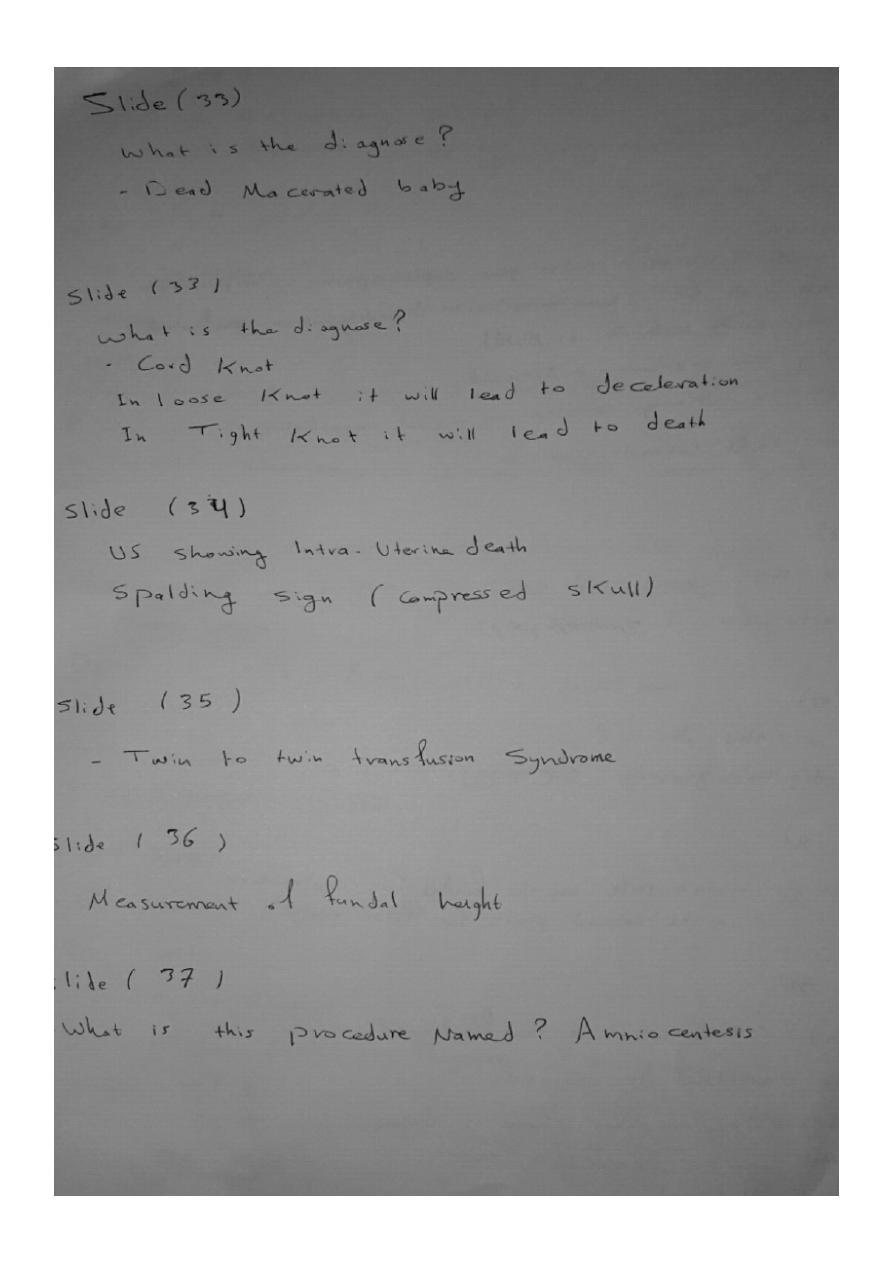 Slide (33)
What is the diagnose?
- Dead Macerated baby
Slide (33)
What is the diagnose?
- Cord Knot
In loose Knot it will lead to deceleration
In Tight Knot it will lead to death
Slide (34)
US showing Intra-Uterine death
Spalding sign (compressed skull)
Slide (35)
- Twin to twin transfusion Syndrome
Slide (36)
Measurement of fundal height
lide (37)
What is this procedure Named? Amniocentesis